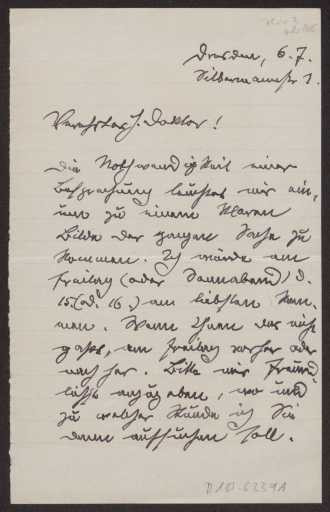 Dresden, 6.7.
Silbermannstr 1.
Verehrter H. Doktor!
Die Notwendigkeit einer
Besprechung leuchtet mir ein,
um zu einem klaren
Bilde der ganzen Sache zu
kommen. Ich würde am
Freitag (oder Sonnabend) d.
15. (od. 16.) am liebsten kom-
men. Wenn Ihnen das nicht
passt, am Freitag vorher oder
nachher. Bitte mir freund-
lichst anzugeben, wo und
zu welcher Stunde ich Sie
dann aufsuchen soll.